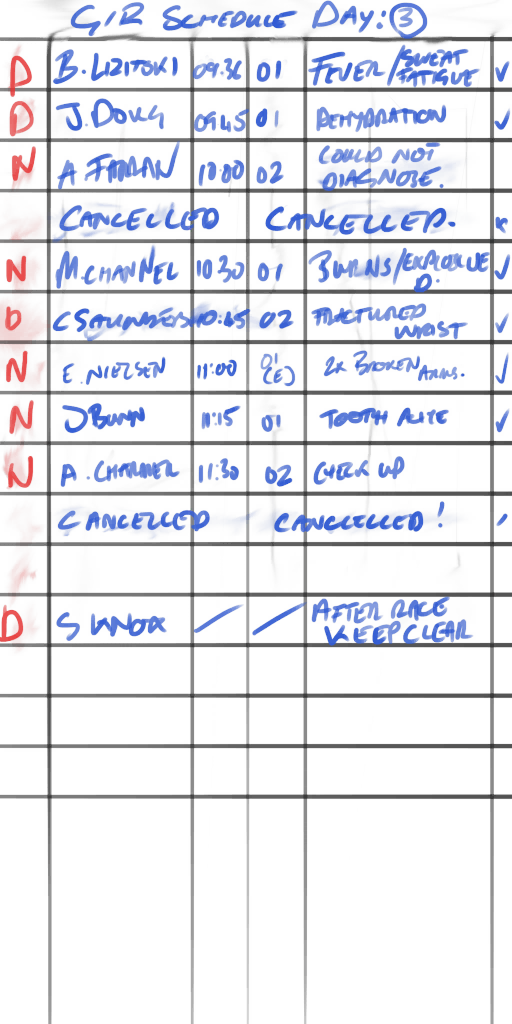 G/R SCHEDULE DAY: 3
D B. LIZITSKI 09.36 01 FEVER/SWEAT FATIGUE
D J. DOUG 09.45 01 DEHYDRATION
N A 10:00 02 COULD NOT DIAGNOSE.
CANCELLED CANCELLED.
N M. CHANNEL 10 30 01 BURNS/
D C SAUNDERS 10:45 02 FRACTURED WRIST
N E. NIELSEN 11:00 01 (E) 2x BROKEN ARMS.
N J BUNN 11:15 01 TOOTH
N A. 11:30 02 CHECK UP
CANCELLED CANCELLED!
D S KNOX / / AFTER RACE KEEP CLEAR